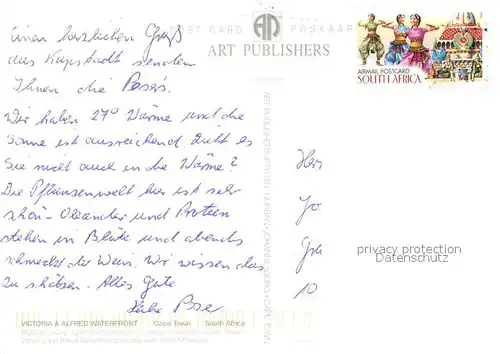 POST CARD POSKAART
ART PUBLISHERS
AIRMAIL POSTCARD
SOUTH AFRICA
Einen herzlichen Gruß
aus Kapstadt senden
Ihnen die
Wir haben 27° Wärme und die
Sonne ist ausreichend. Zieht es
Sie nicht auch in die Wärme?
Die Pflanzenwelt hier ist sehr
schön - Oleander und Proteen
stehen in Blüte und abends
schmeckt der Wein. Wir wissen das
zu schätzen. Alles Gute
privacy protection
Datenschutz
10
VICTORIA & ALFRED WATERFRONT Cape Town South Africa